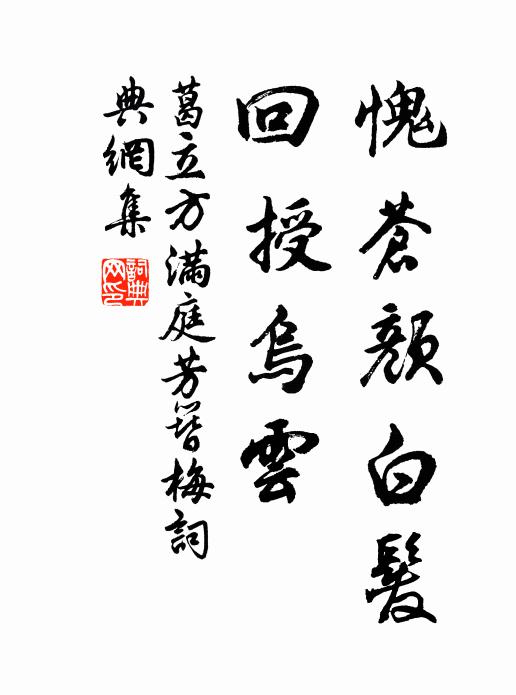 愧蒼顏白髮
回授烏雲
葛立方滿庭芳簪梅詞
典網集
詞典
网印